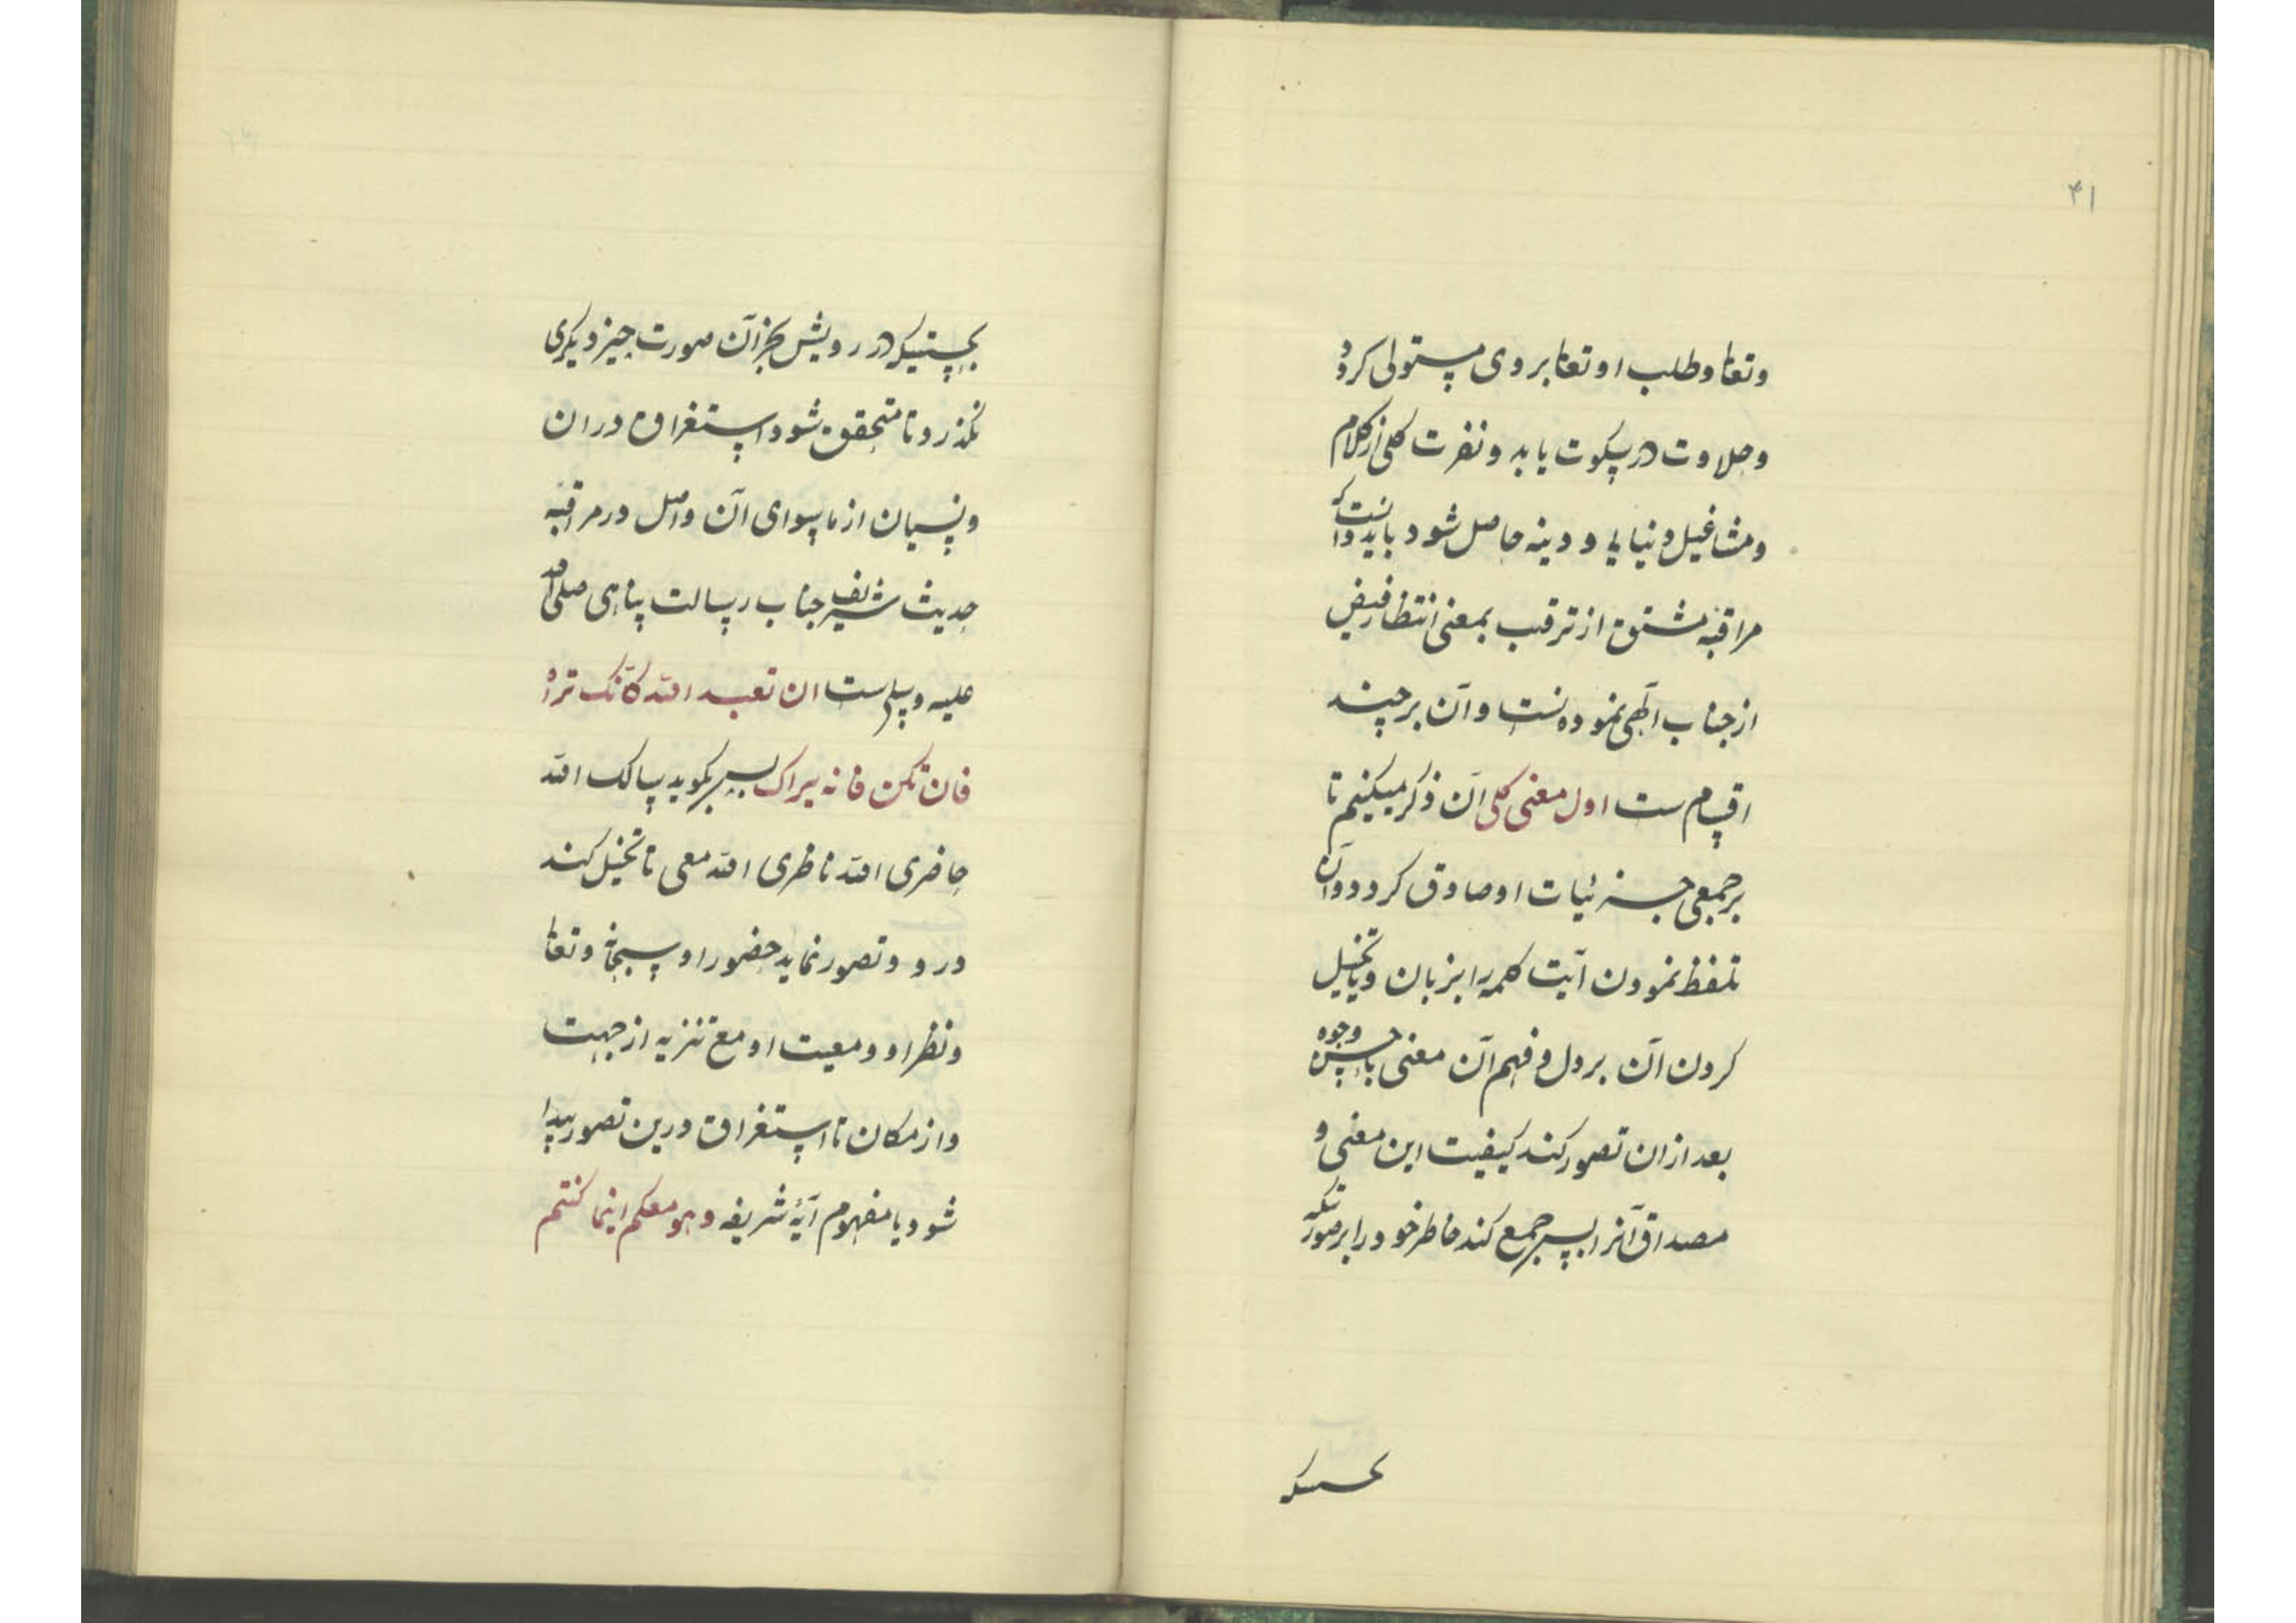 ۴۱
وتعا وطلب او تعا بر وی مستولی کردد
وحلاوت در سکوت یابد ونفرت کلی از کلام
ومشاغیل دنیایی و دینه حاصل شود باید دانست که
مراقبه مشتق از ترقب بمعنی انتظار فیض
از جناب الهی نموده نست وآن بر چند
اقسام ست اول معنی کلی آن ذکر میکنیم تا
بر جمیع جزئیات او صادق کردد وآن
تلفظ نمودن آیت کلمه را بزبان ویا تخیل
کردن آن بر دل وفهم آن معنی باحسن وجوه
بعد ازان تصور کند کیفیت این معنی و
مصداق آنرا پس جمع کند خاطر خود را بر صورتیکه
بحسیتیکه
بحیثیتیکه در رویش بجز آن صورت چیز دیکری
نکذرد تا متحقق شود استغراق دران
ونسیان از ماسوای آن واصل در مراقبه
حدیث شریف جناب رسالت پناهی صلی الله
علیه وسلم ست ان تعبد الله کانک تراه
فان تکن فانه یراک پس بکوید سالک الله
حاضری الله ناظری الله معی تا تخیل کند
در و وتصور نماید حضور او سبحانه وتعا
ونظر او ومعیت او مع تنزیه از جهت
واز مکان تا استغراق درین تصور پیدا
شود یا مفهوم آیهٔ شریفه وهو معکم اینما کنتم